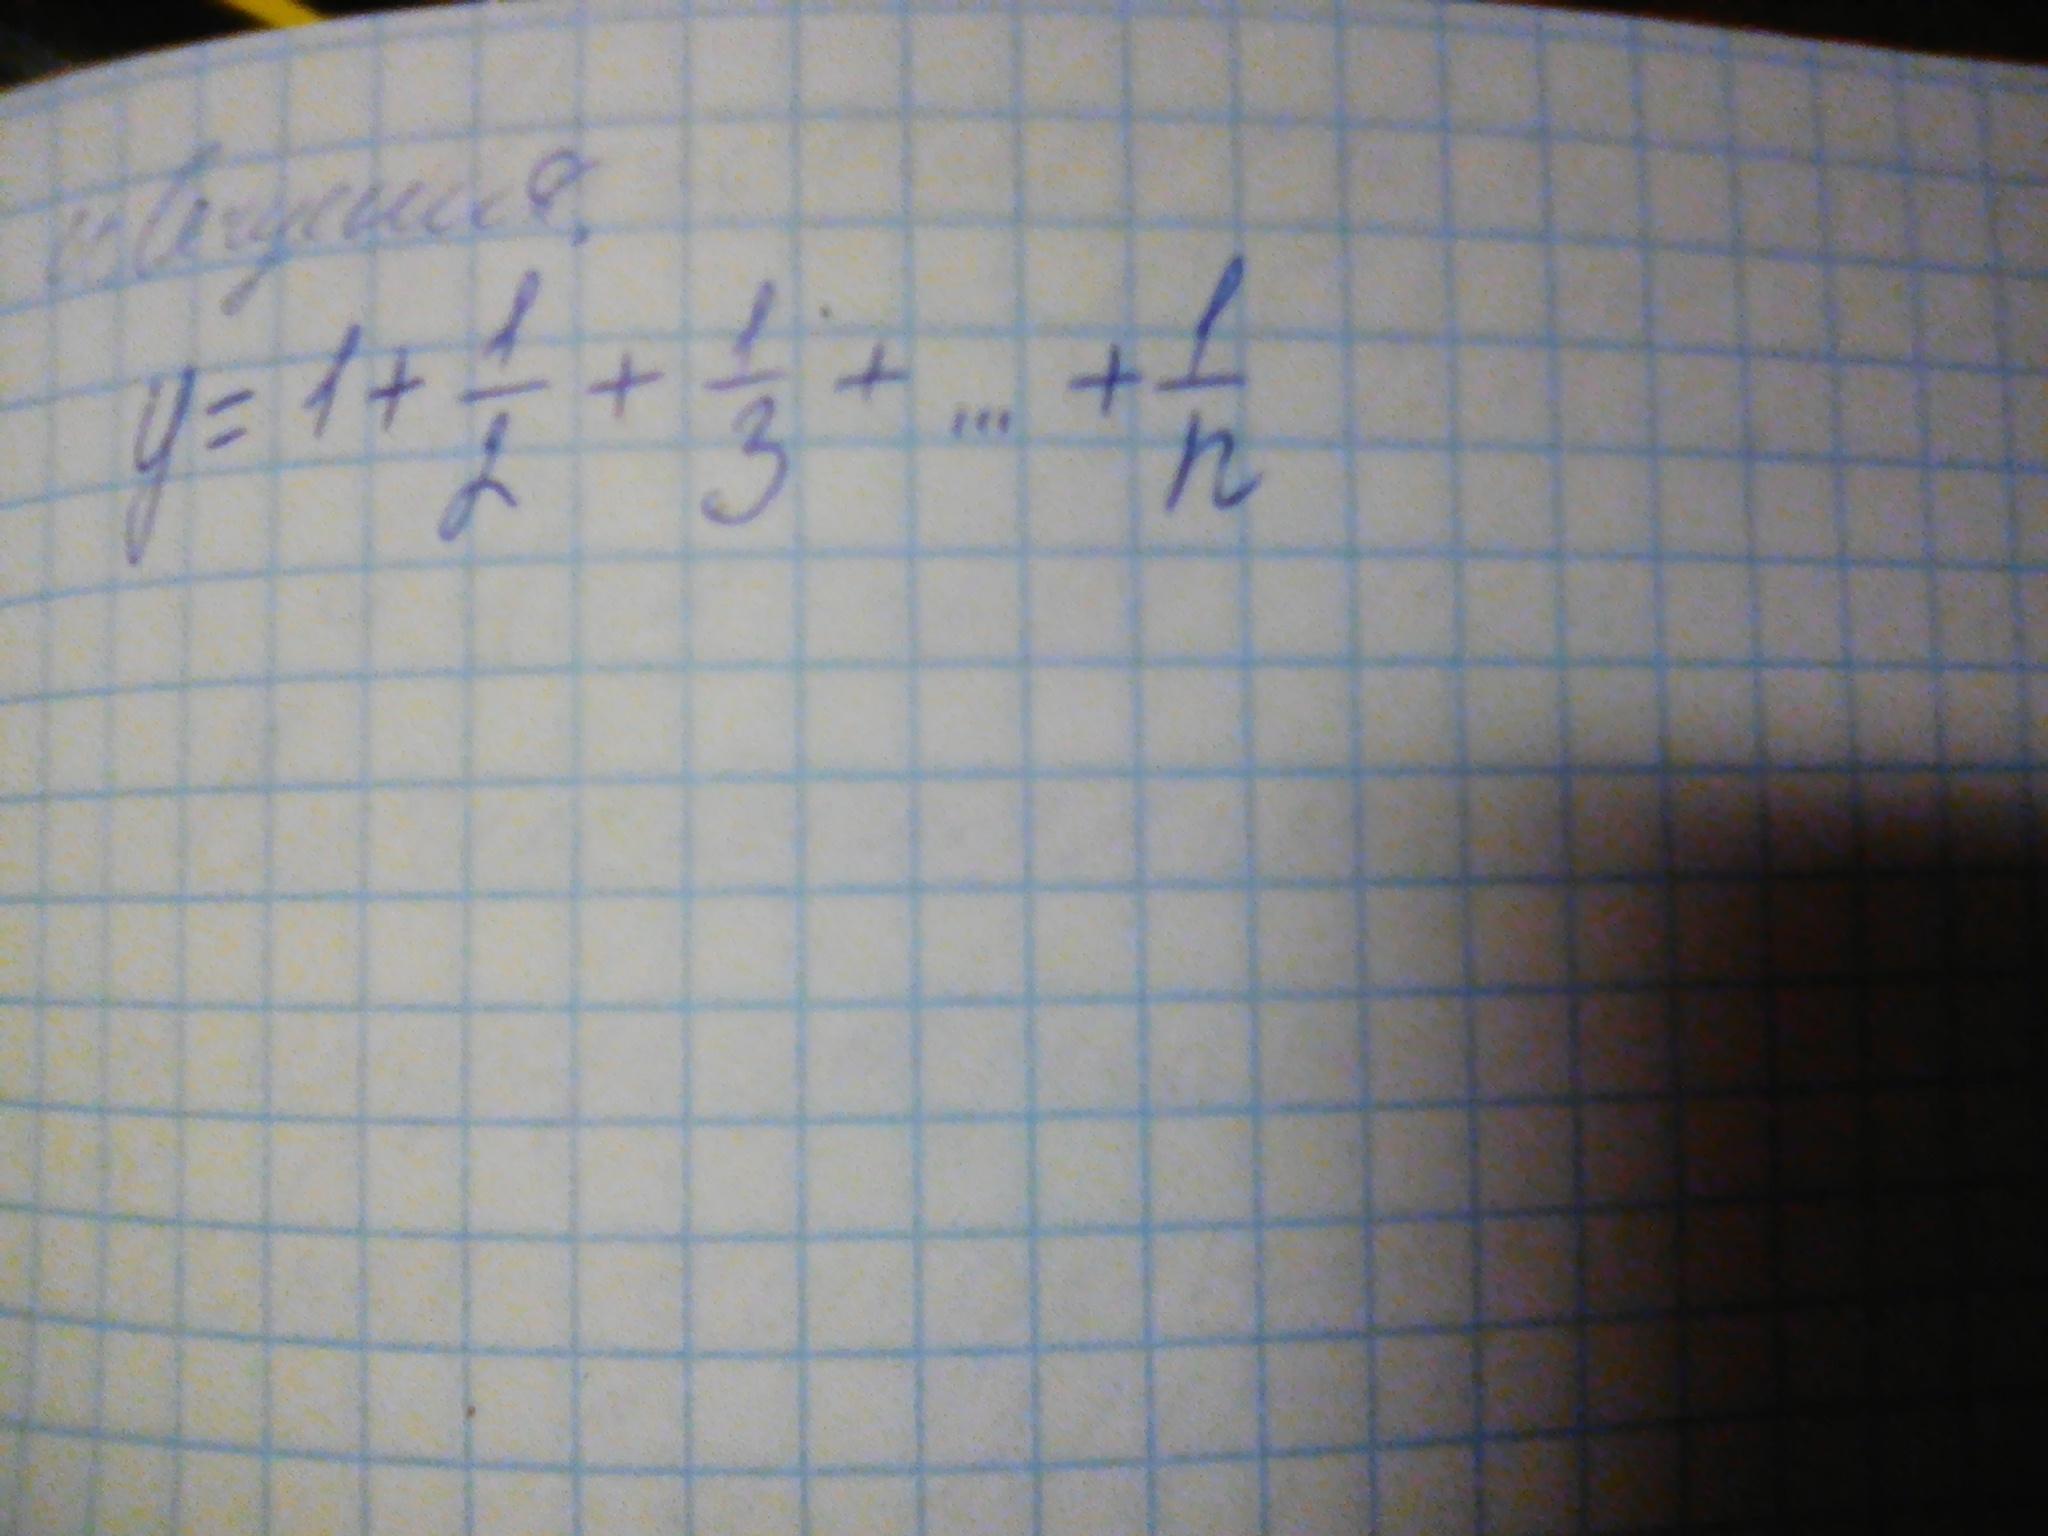 y = 1 + 1/2 + 1/3 + ... + 1/n